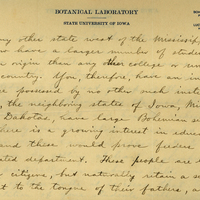 BOTANICAL LABORATORY
STATE UNIVERSITY OF IOWA
any other state west of the Mississip
have a larger number of stude
origin than any other college or
country. You, therefore, have an in
possessed by no other such insti
the neighboring states of Iowa, Mi
Dakotas, have large Bohemian
there is a growing interest in educ
and these would prove feeders
ated department. These people are
citizens, but naturally retain a
t to the tongue of their fathers, a